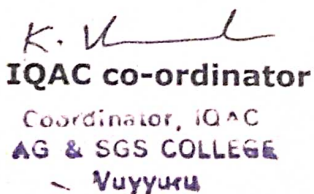 K.
IQAC co-ordinator
Coordinator, IQAC
AG & SGS COLLEGE
Vuyyuru